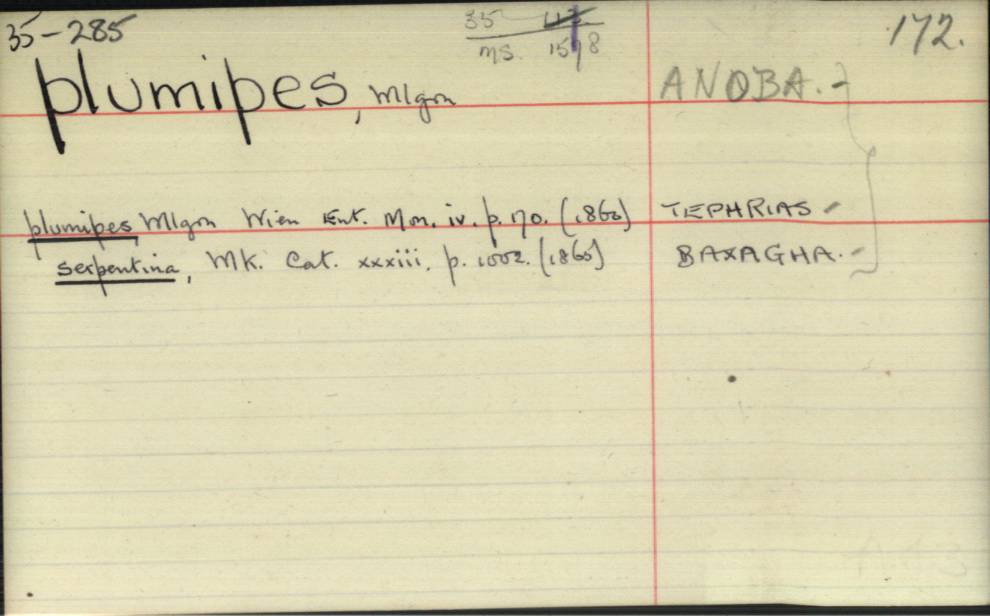 35-285 35 172.
ms. 15 8
plumipes, Mlgon ANOBA.
plumipes, Mlgon Wien Ent. Mon. iv. p. 170. (1860) TEPHRIAS
serpentina, Mk. Cat. xxxiii. p. 1002. (1865) BAXAGHA.